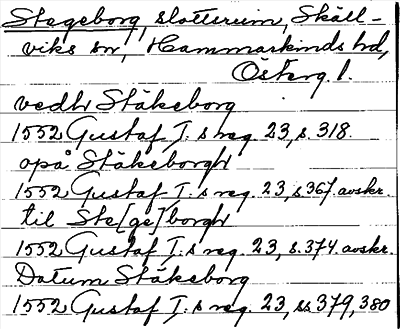 Stegeborg, slottsruin, Skäll-
viks sn, Hammarkinds hd,
Österg. l.
vedh Stäkeborg
1552 Gustaf I:s reg. 23, s. 318.
opå Stäkeborgh
1552 Gustaf I:s reg. 23, s 367. avskr.
til Ste[ge]borgh
1552 Gustaf I:s reg. 23, s. 374. avskr.
Datum Stäkeborg
1552 Gustaf I:s reg. 23, ss 379, 380